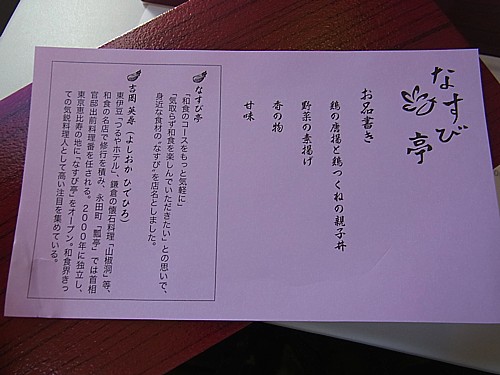 なすび亭
お名書き
鶏の唐揚と鶏つくねの親子丼
野菜の素揚げ
香の物
甘味
なすび亭
「和食のコースをもっと気軽に」
「気取らず和食を楽しんでいただきたい」との思いで、
身近な食材の“なすび”を店名としました。
吉岡 英尋（よしおか ひでひろ）
東伊豆「つるやホテル」、鎌倉の懐石料理「山椒洞」等、
和食の名店で修行を積み、永田町「瓢亭」では首相
官邸出前料理番を任される。2000年に独立し、
東京恵比寿の地に「なすび亭」をオープン。和食界きっ
ての気鋭料理人として高い注目を集めている。